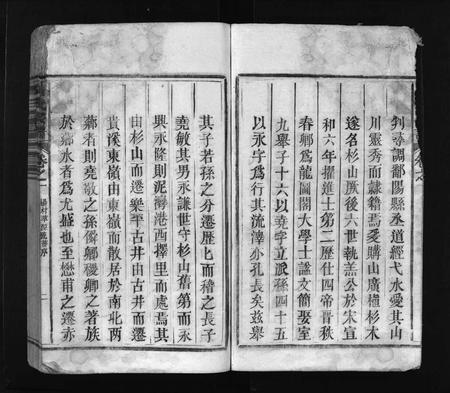 判尋調鄱陽縣丞道經弋水愛其山
川靈秀而隸籍焉爰購山廣植杉木
遂名杉山厥後六世執羔公於宋宣
和六年擢進士第二歷仕四帝晉秩
春卿爲龍圖閣大學士諡文簡娶室
九舉子十六以堯字立派孫四十五
以永字爲行其流澤亦孔長矣茲舉
其子若孫之分遷歷七而稽之長子
堯敏其男永謙世守杉山舊第而永
興永隆則泥灣港西擇里而處焉其
由杉山而遷樂平古井由古井而遷
貴溪東嶺由東嶺而散居於南北兩
鄰者則堯敬之孫僻卿稷卿之著族
於鄰水者爲尤盛也至懋甫之遷亦